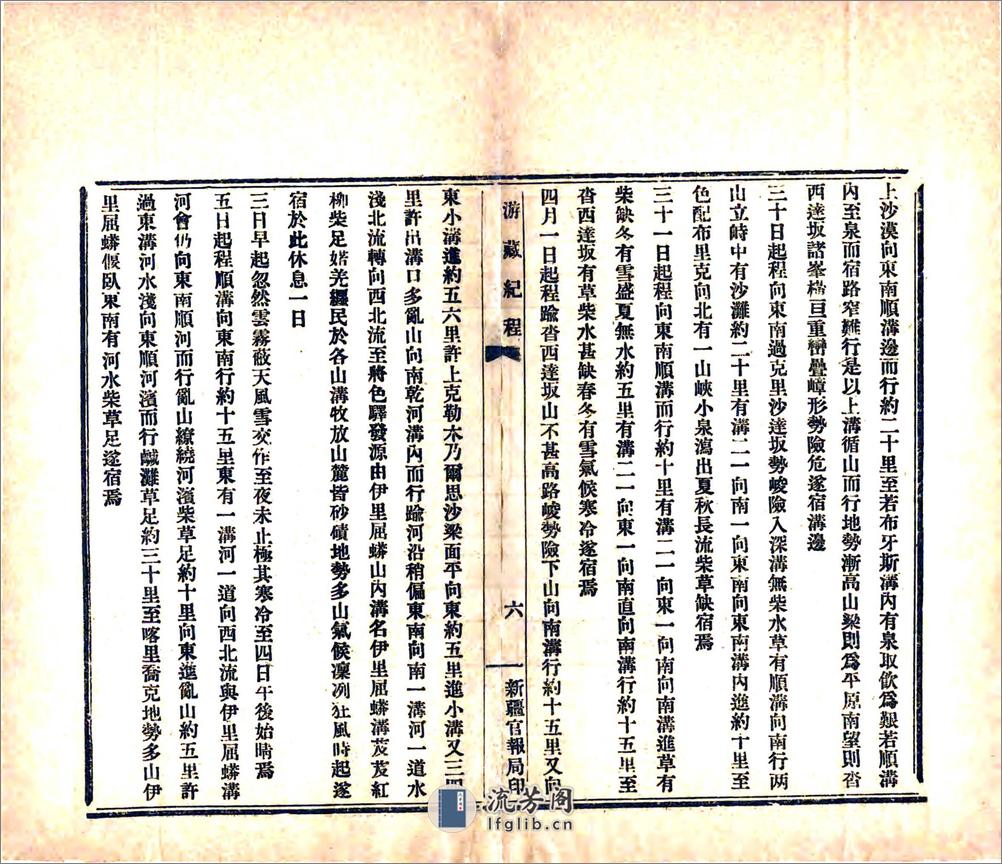 上沙漠向東南順溝邊而行約二十里至若布牙斯溝內有泉取飲為艱若順溝
內至泉而宿路窄難行是以上溝循山而行地勢漸高山梁則為平原南望則沓
西達坂諸峯橫亘重巒疊嶂形勢險危遂宿溝邊
三十日起程向東南過克里沙達坂勢峻險入深溝無柴水草有順溝向南行兩
山立峙中有沙灘約二十里有溝二一向南一向東南向東南溝內進約十里至
色配布里克向北有一山峽小泉瀉出夏秋長流柴草缺宿焉
三十一日起程向東南順溝而行約十里有溝二一向東一向南向南溝進草有
柴缺冬有雪盛夏無水約五里有溝二一向東一向南直向南溝行約十五里至
沓西達坂有草柴水甚缺春冬有雪氣候寒冷遂宿焉
四月一日起程踰沓西達坂山不甚高路峻勢險下山向南溝行約十五里又向
游藏紀程
六
新疆官報局印
東小溝進約五六里許上克勒木乃爾思沙梁面平向東約五里進小溝又三四
里許出溝口多亂山向南乾河溝內而行踰河沿稍偏東南向南一溝河一道水
淺北流轉向西北流至將色驛發源由伊里屈蟒山內溝名伊里屈蟒溝芨芨紅
柳柴足婼羌纏民於各山溝牧放山麓皆砂磧地勢多山氣候凜冽狂風時起遂
宿於此休息一日
三日早起忽然雲霧蔽天風雪交作至夜未止極其寒冷至四日午後始晴焉
五日起程順溝向東南行約十五里東有一溝河一道向西北流與伊里屈蟒溝
河會仍向東南順河而行亂山繚繞河濱柴草足約十里向東進亂山約五里許
過東溝河水淺向東順河濱而行鹹灘草足約三十里至喀里喬克地勢多山伊
里屈蟒偃臥東南有河水柴草足遂宿焉
流芳阁
lfglib.cn